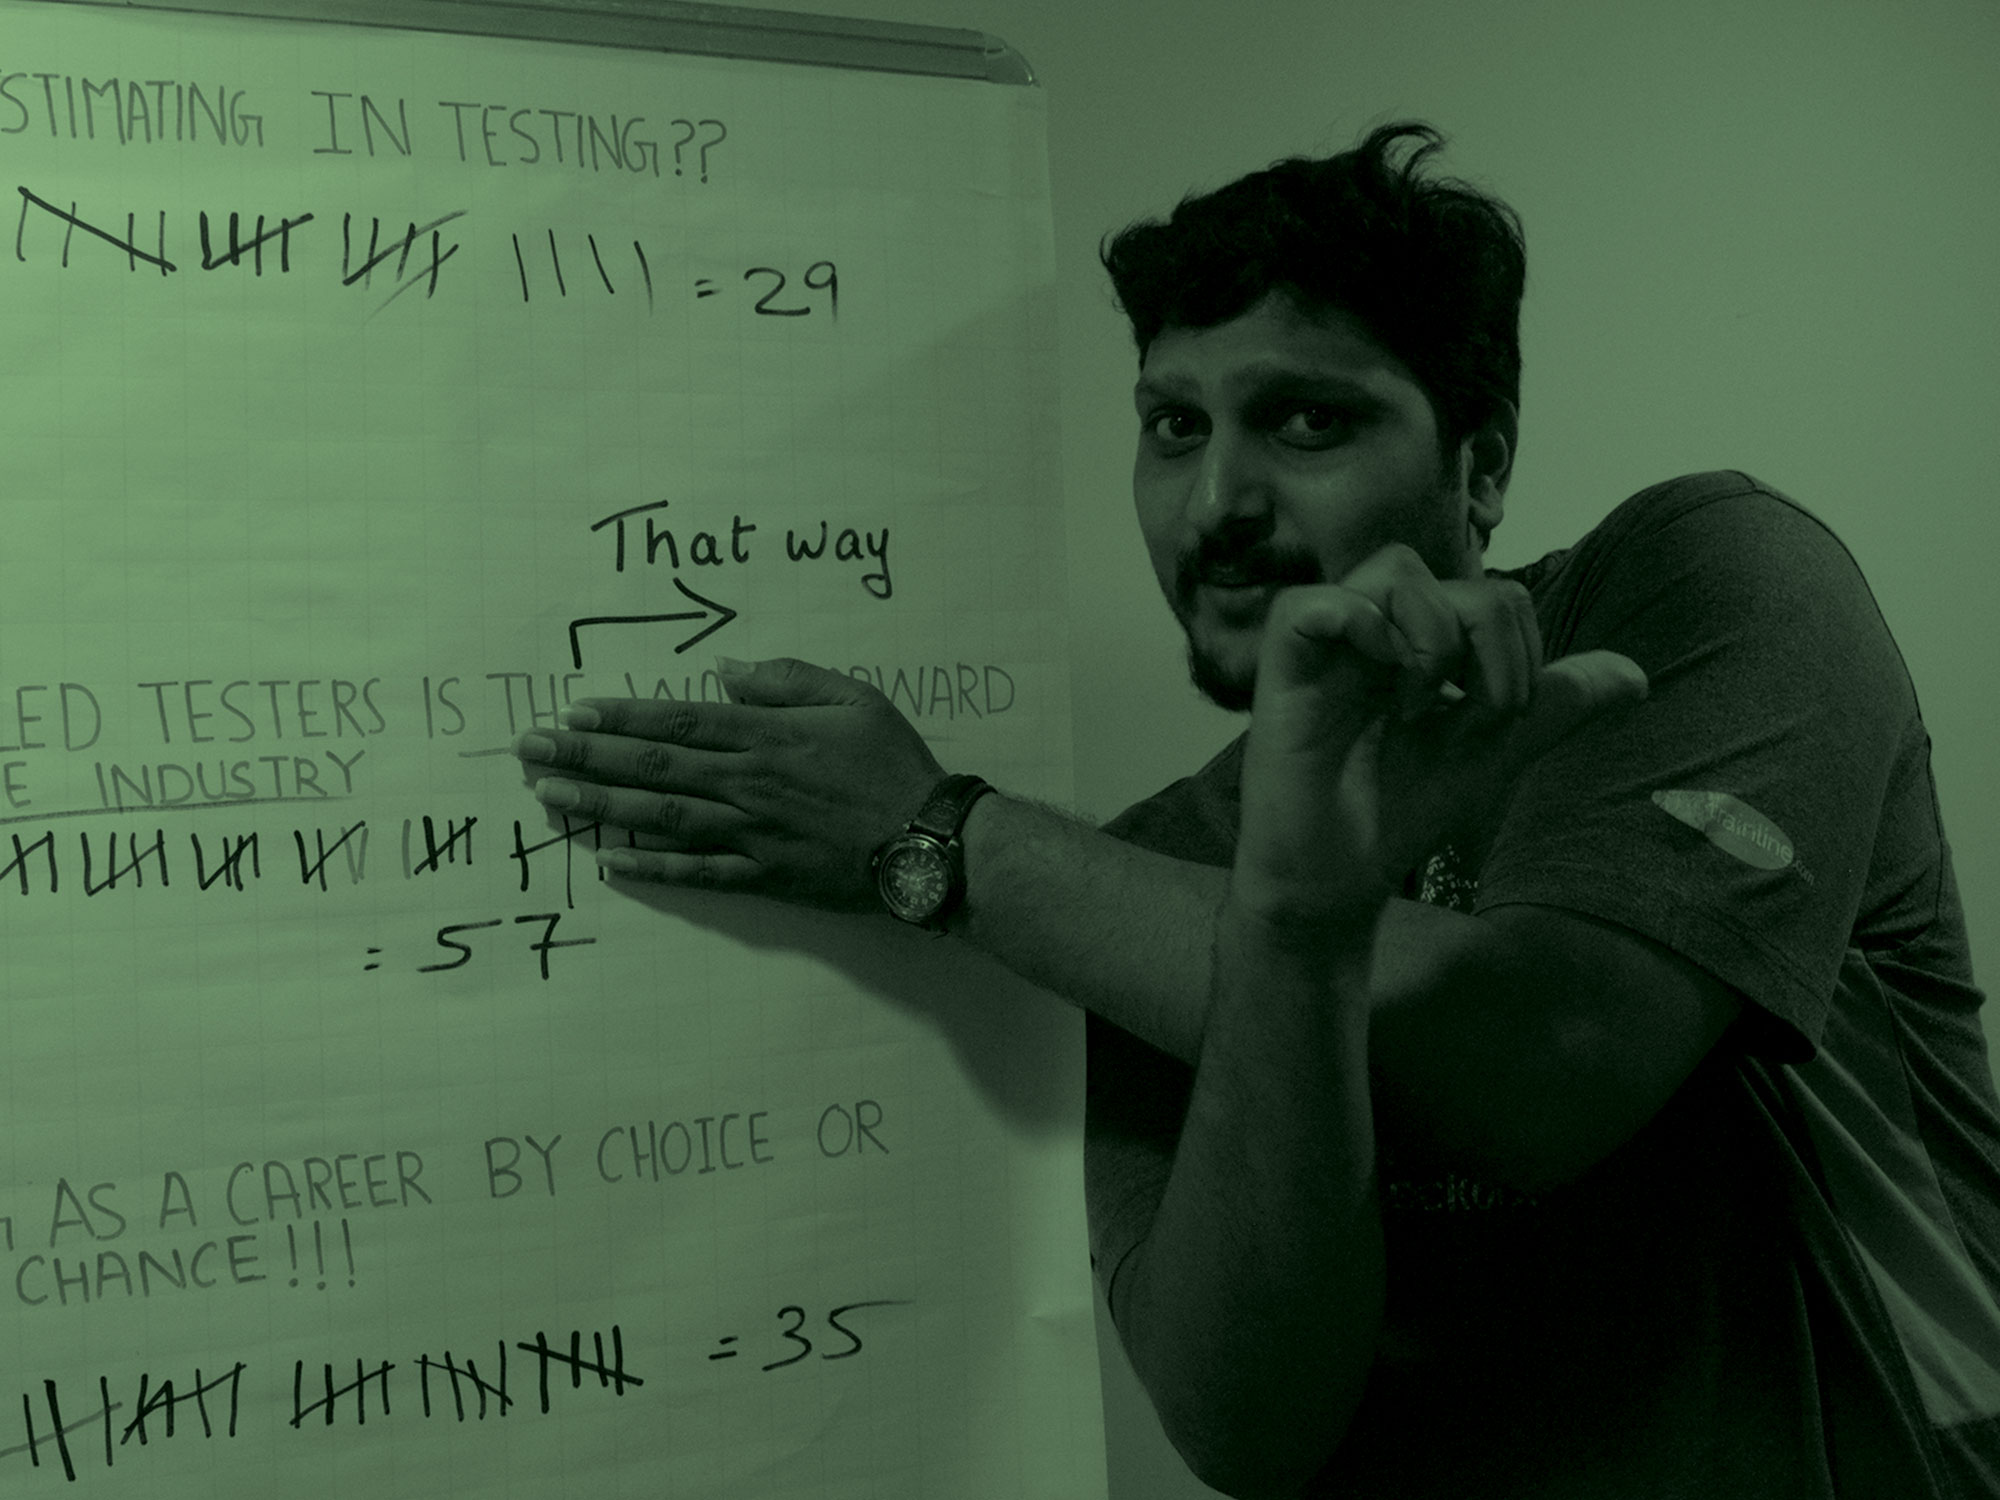 STIMATING IN TESTING??
= 29
That way
LED TESTERS IS THE WAY FORWARD
E INDUSTRY
= 57
G AS A CAREER BY CHOICE OR
CHANCE!!!
= 35
trainline.com